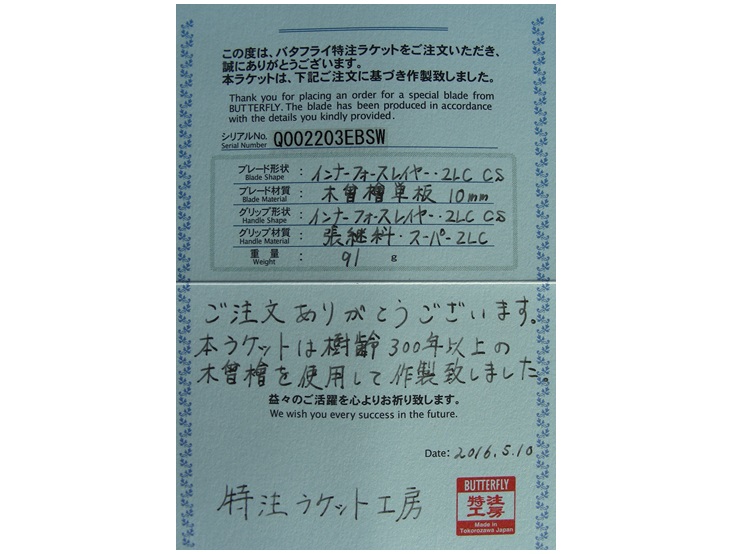 この度は、バタフライ特注ラケットをご注文いただき、
誠にありがとうございます。
本ラケットは、下記ご注文に基づき作製致しました。
Thank you for placing an order for a special blade from
BUTTERFLY. The blade has been produced in accordance
with the details you kindly provided.
シリアルNo.
Serial Number
Q002203EBSW
ブレード形状
Blade Shape
: インナーフォースレイヤー・ZLC CS
ブレード材質
Blade Material
: 木曾檜単板 10mm
グリップ形状
Handle Shape
: インナーフォースレイヤー・ZLC CS
グリップ材質
Handle Material
: 張継科・スーパーZLC
重量
Weight
: 91 g
ご注文ありがとうございます。
本ラケットは樹齢300年以上の
木曾檜を使用して作製致しました。
益々のご活躍を心よりお祈り致します。
We wish you every success in the future.
Date: 2016.5.10
特注ラケット工房
BUTTERFLY
特注
工房
Made in
Tokorozawa Japan